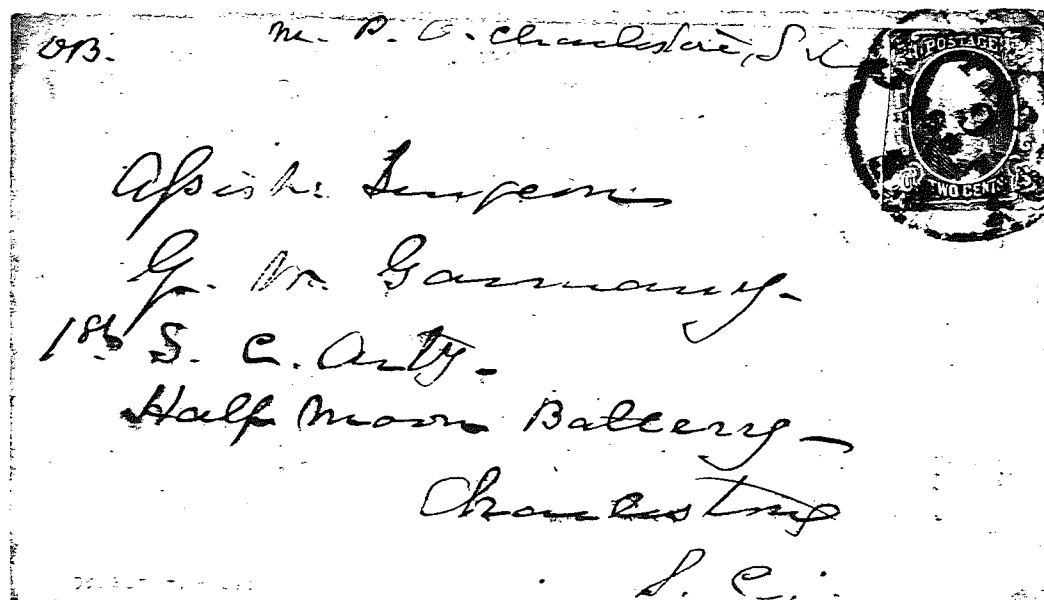 DB. M. P. O. Charleston, S. C.
POSTAGE
TWO CENTS
Assist: Surgeon
G. M. Garmany-
1st S. C. Arty-
Half Moon Battery-
Charleston
S. C.